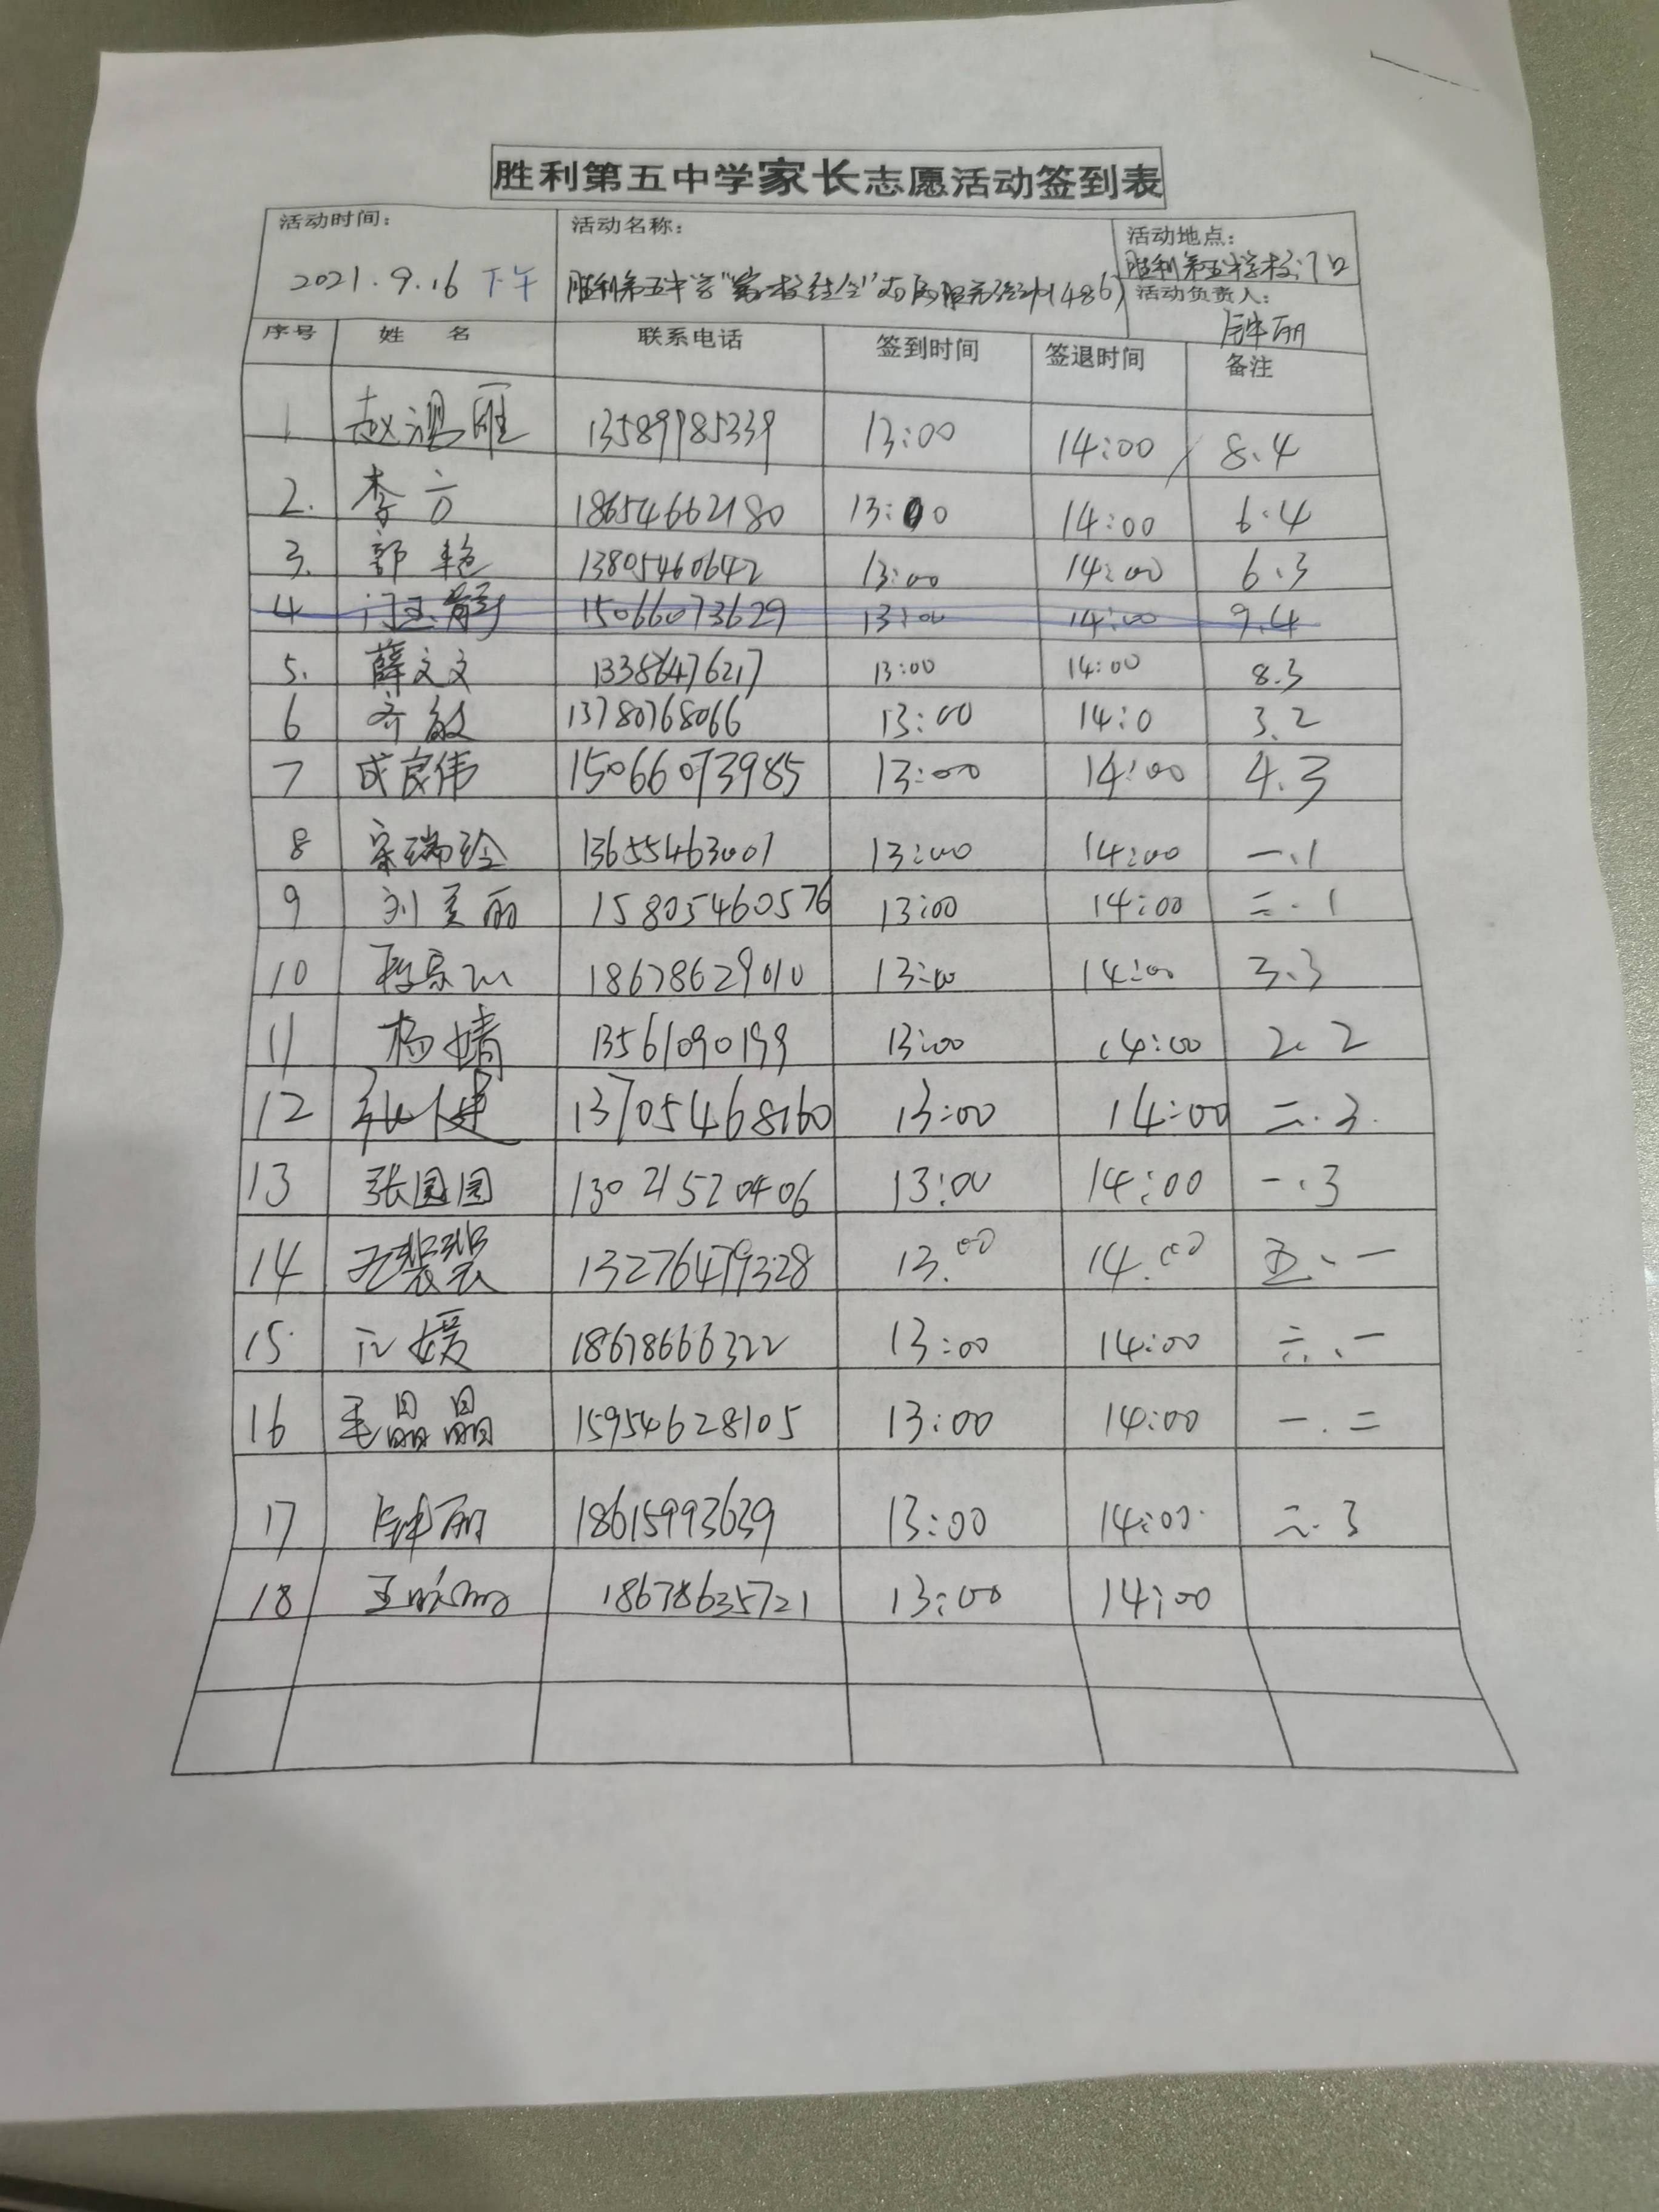 胜利第五中学家长志愿活动签到表
活动时间: 活动名称: 活动地点:
2021.9.16 下午 胜利第五中学"家校结合" (486) 胜利第五中学校门口
活动负责人:
钟丽
序号 姓名 联系电话 签到时间 签退时间 备注
1 赵 雁 13589985339 13:00 14:00 8.4
2. 李方 18654662180 13:00 14:00 6.4
3. 郭艳 13805460642 13:00 14:00 6.3
4 15066073629 13:00 14:00 9.4
5. 薛文文 13386476217 13:00 14:00 8.3
6 齐敏 13780768066 13:00 14:0 3.2
7 成良伟 15066073985 13:00 14:00 4.3
8 宋瑞玲 13655463001 13:00 14:00 一.1
9 刘美丽 15805460576 13:00 14:00 二.1
10 18678629010 13:00 14:00 3.3
11 杨婧 13561090199 13:00 14:00 2.2
12 张健 13705468160 13:00 14:00 二.3.
13 张圆圆 13021520406 13:00 14:00 一.3
14 裴裴 13276479328 13.00 14.00 五、一
15. 媛 18678666322 13:00 14:00 六、一
16 毛晶晶 15954628105 13:00 14:00 一.二
17 钟丽 18615993639 13:00 14:00 二.3
18 王 18678635721 13:00 14:00